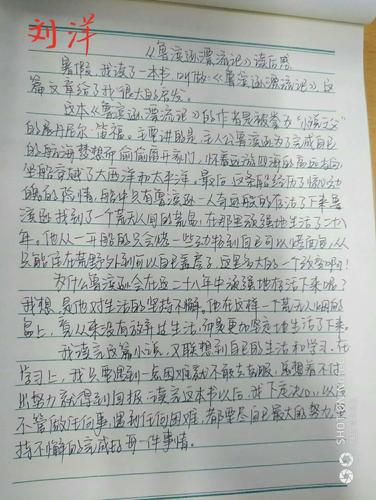 刘洋
《鲁滨逊漂流记》读后感
暑假,我读了一本书,叫做《鲁滨逊漂流记》这
篇文章给了我很大的启发。
这本《鲁滨逊漂流记》的作者是被誉为"小说之父"
的丹尼尔·笛福。主要讲的是主人公鲁滨逊为了完成自己
的航海梦想而偷偷离开家门,怀着远游四海的高远志向
坐船穿越了大西洋和太平洋。最后,这条船经历了惊心动
魄的险情,船中只有鲁滨逊一人奇迹般的存活了下来鲁
滨逊找到了一个荒无人间的荒岛,在那里顽强地生活了二十八
年。他从一开始的只会烤一些动物到自己可以烤面包,从
只能住在荒野外到可以自己盖房子,这是多大的一个改变啊!
为什么鲁滨逊会在这二十八年中顽强地存活下来呢?
我想,是他对生活的坚持不懈。他在这样一个荒无人烟的
岛上,看从来没有放弃过生活,而是更加坚定地生活了下来。
我读完这篇小说,又联想到自己的生活和学习,在
学习上,我只要遇到一点困难就不敢去克服,总想着不付
出努力就得到回报。读完这本书以后,我下定决心,以后
不管做任何事,遇到任何困难,都要尽自己最大的努力,坚
持不懈的完成好每一件事情。